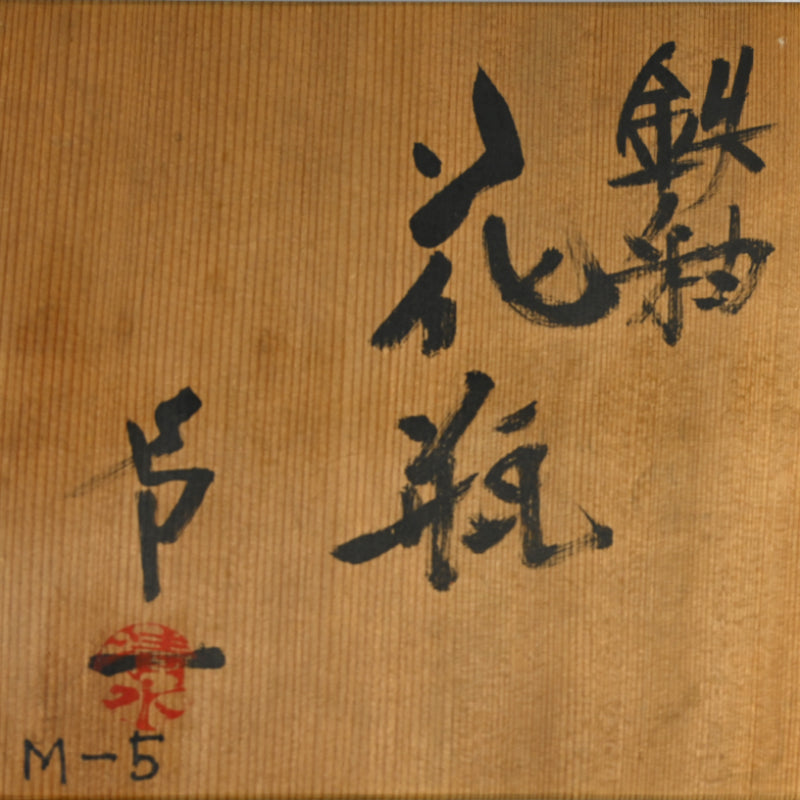 鉄釉
花瓶
卯一
清水
M-5